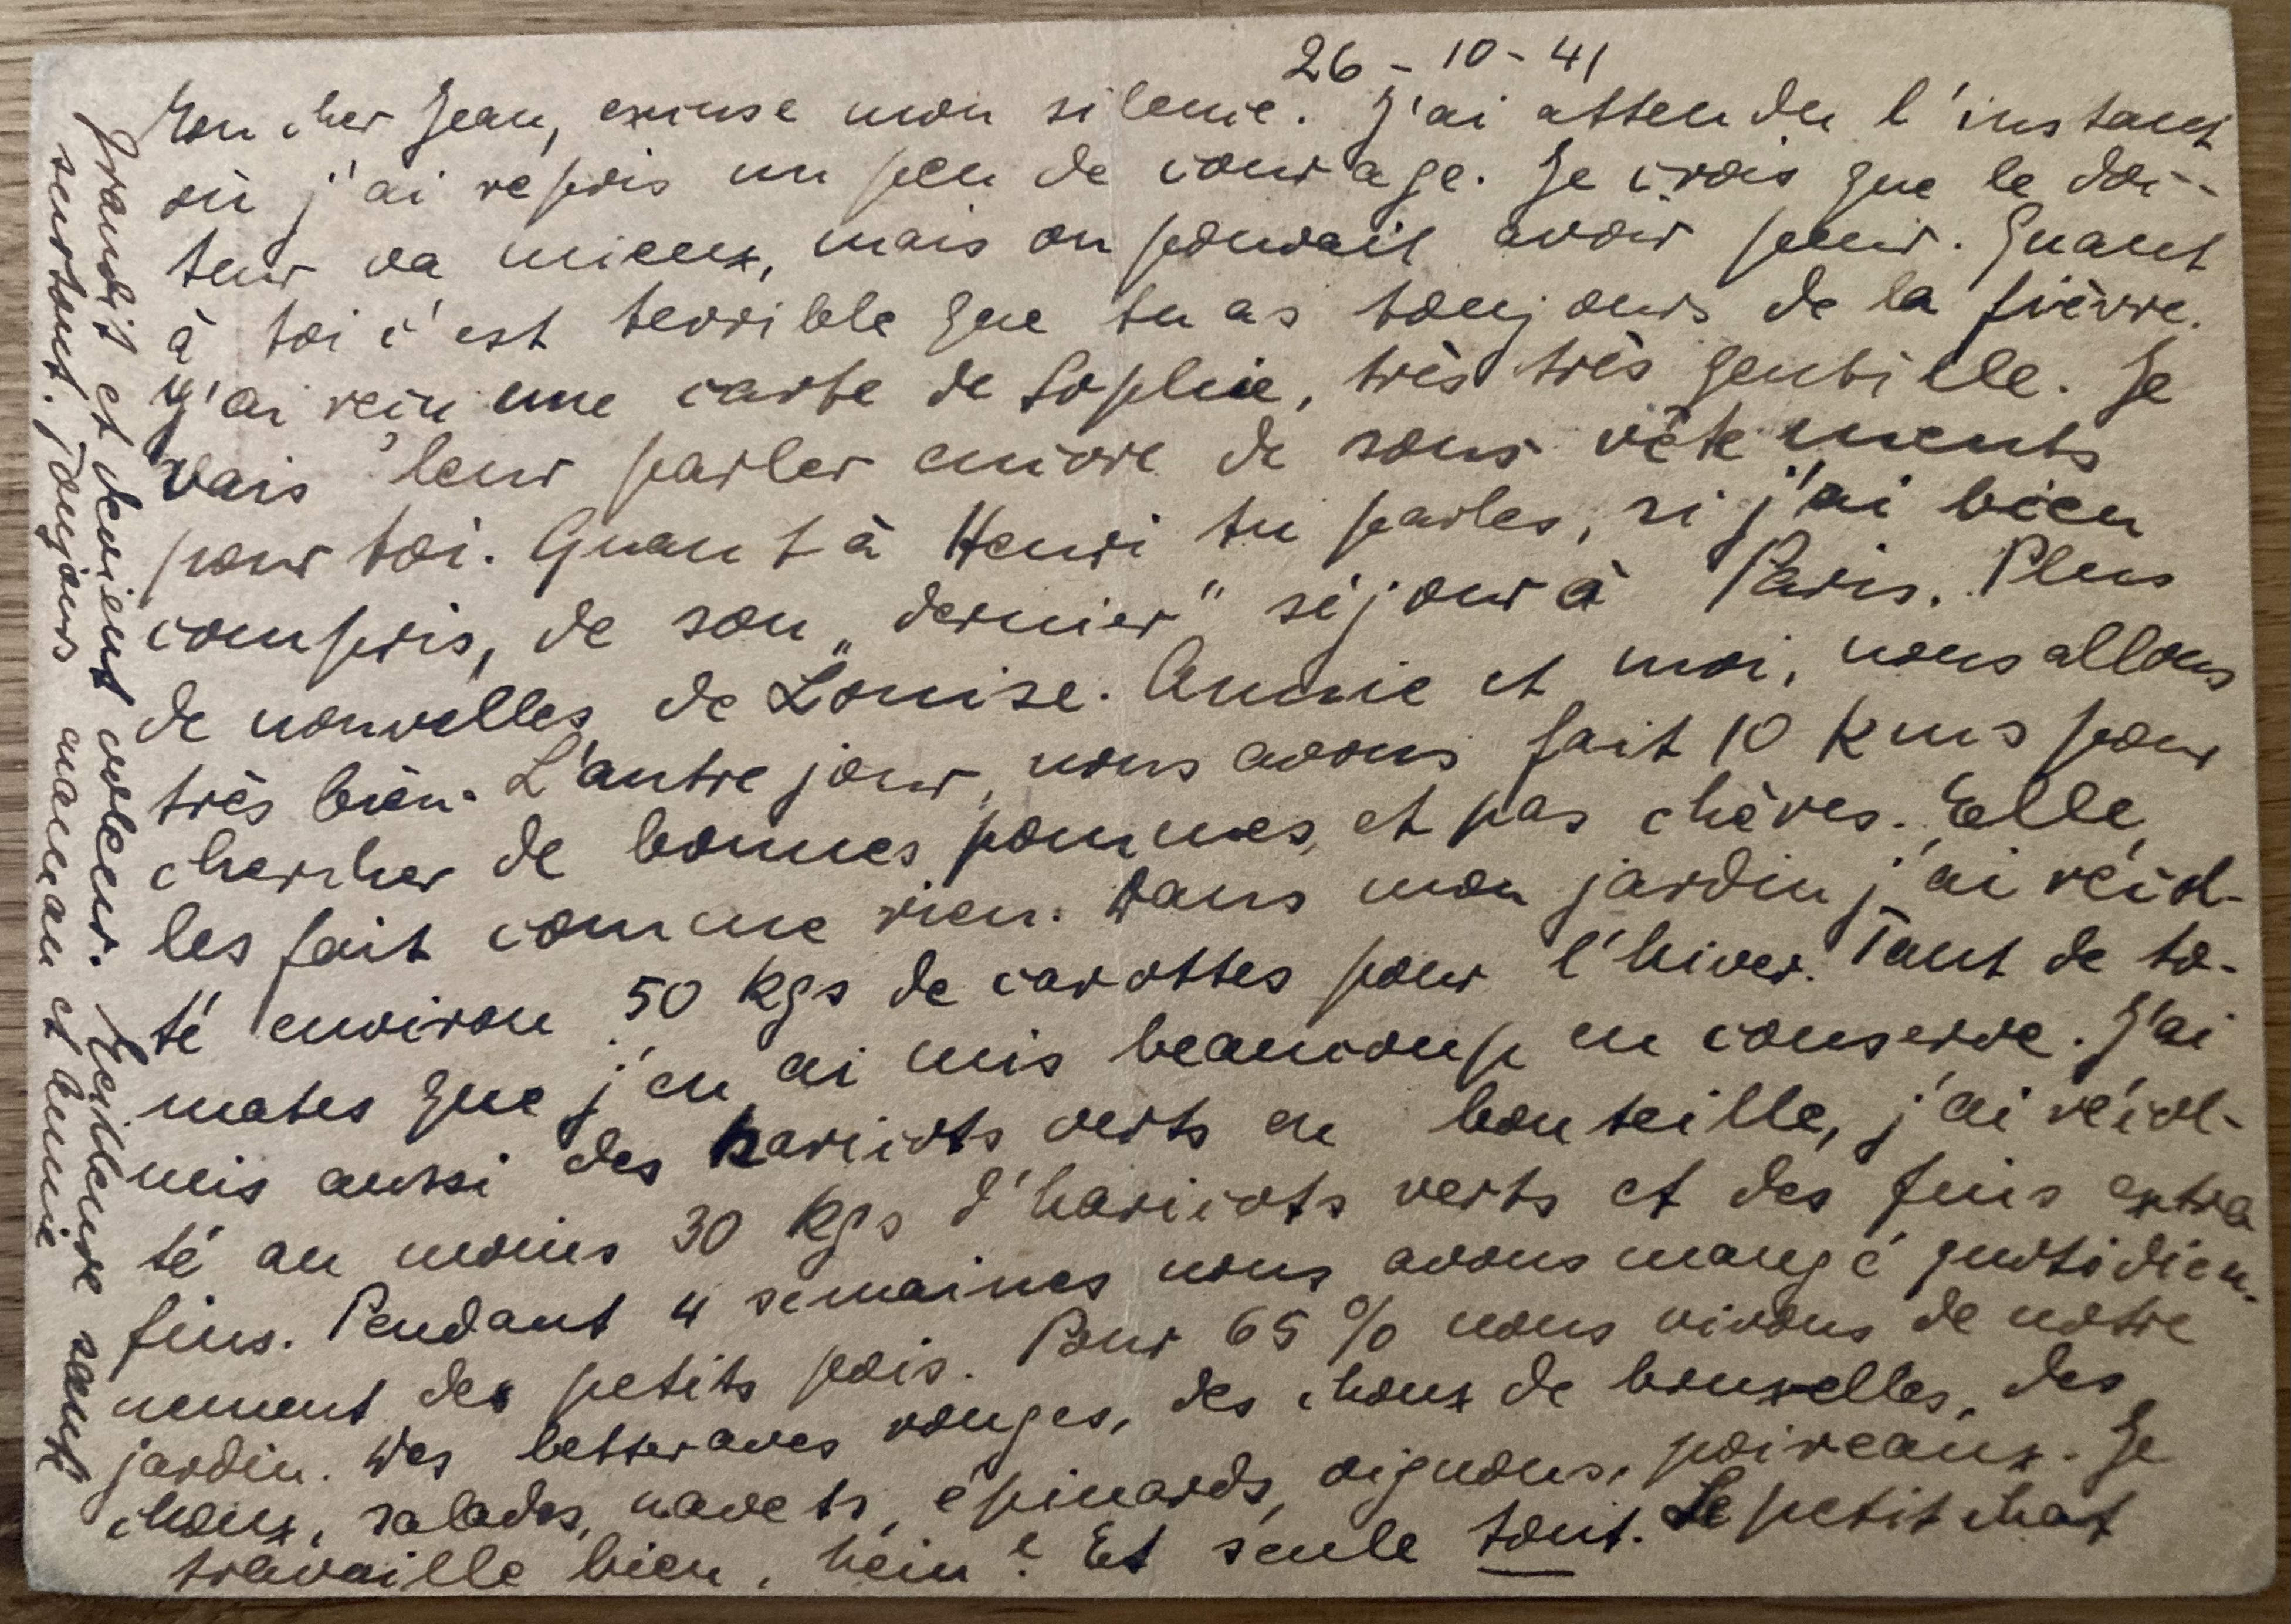 26-10-41
Mon cher Jean, excuse mon silence. J'ai attendu l'instant
où j'ai repris un peu de courage. Je crois que le doc-
teur va mieux, mais on pouvait avoir peur. Quant
à toi c'est terrible que tu as toujours de la fièvre.
J'ai reçu une carte de Sophie, très très gentille. Je
vais leur parler encore de sous vêtements
pour toi. Quant à Henri tu parles, si j'ai bien
compris, de son „dernier" séjour à Paris. Plus
de nouvelles de Louise. Annie et moi, nous allons
très bien. L'autre jour, nous avons fait 10 kms pour
chercher de bonnes pommes, et pas chères. Elle
les fait comme rien. Dans mon jardin j'ai récol-
té environ 50 kgs de carottes pour l'hiver. Tant de to-
mates que j'en ai mis beaucoup en conserve. J'ai
mis aussi des haricots verts en bouteille, j'ai récol-
té au moins 30 kgs d'haricots verts et des fins extra
fins. Pendant 4 semaines nous avons mangé quotidien-
nement des petits pois. Pour 65% nous vivons de notre
jardin. Des betteraves rouges, des choux de bruxelles, des
choux, salades, navets, épinards, oignons, poireaux. Je
travaille bien, hein? Et seule tout. Le petit chat
grandit et devient voleur. Meilleure santé
surtout. Toujours maneau et Annie